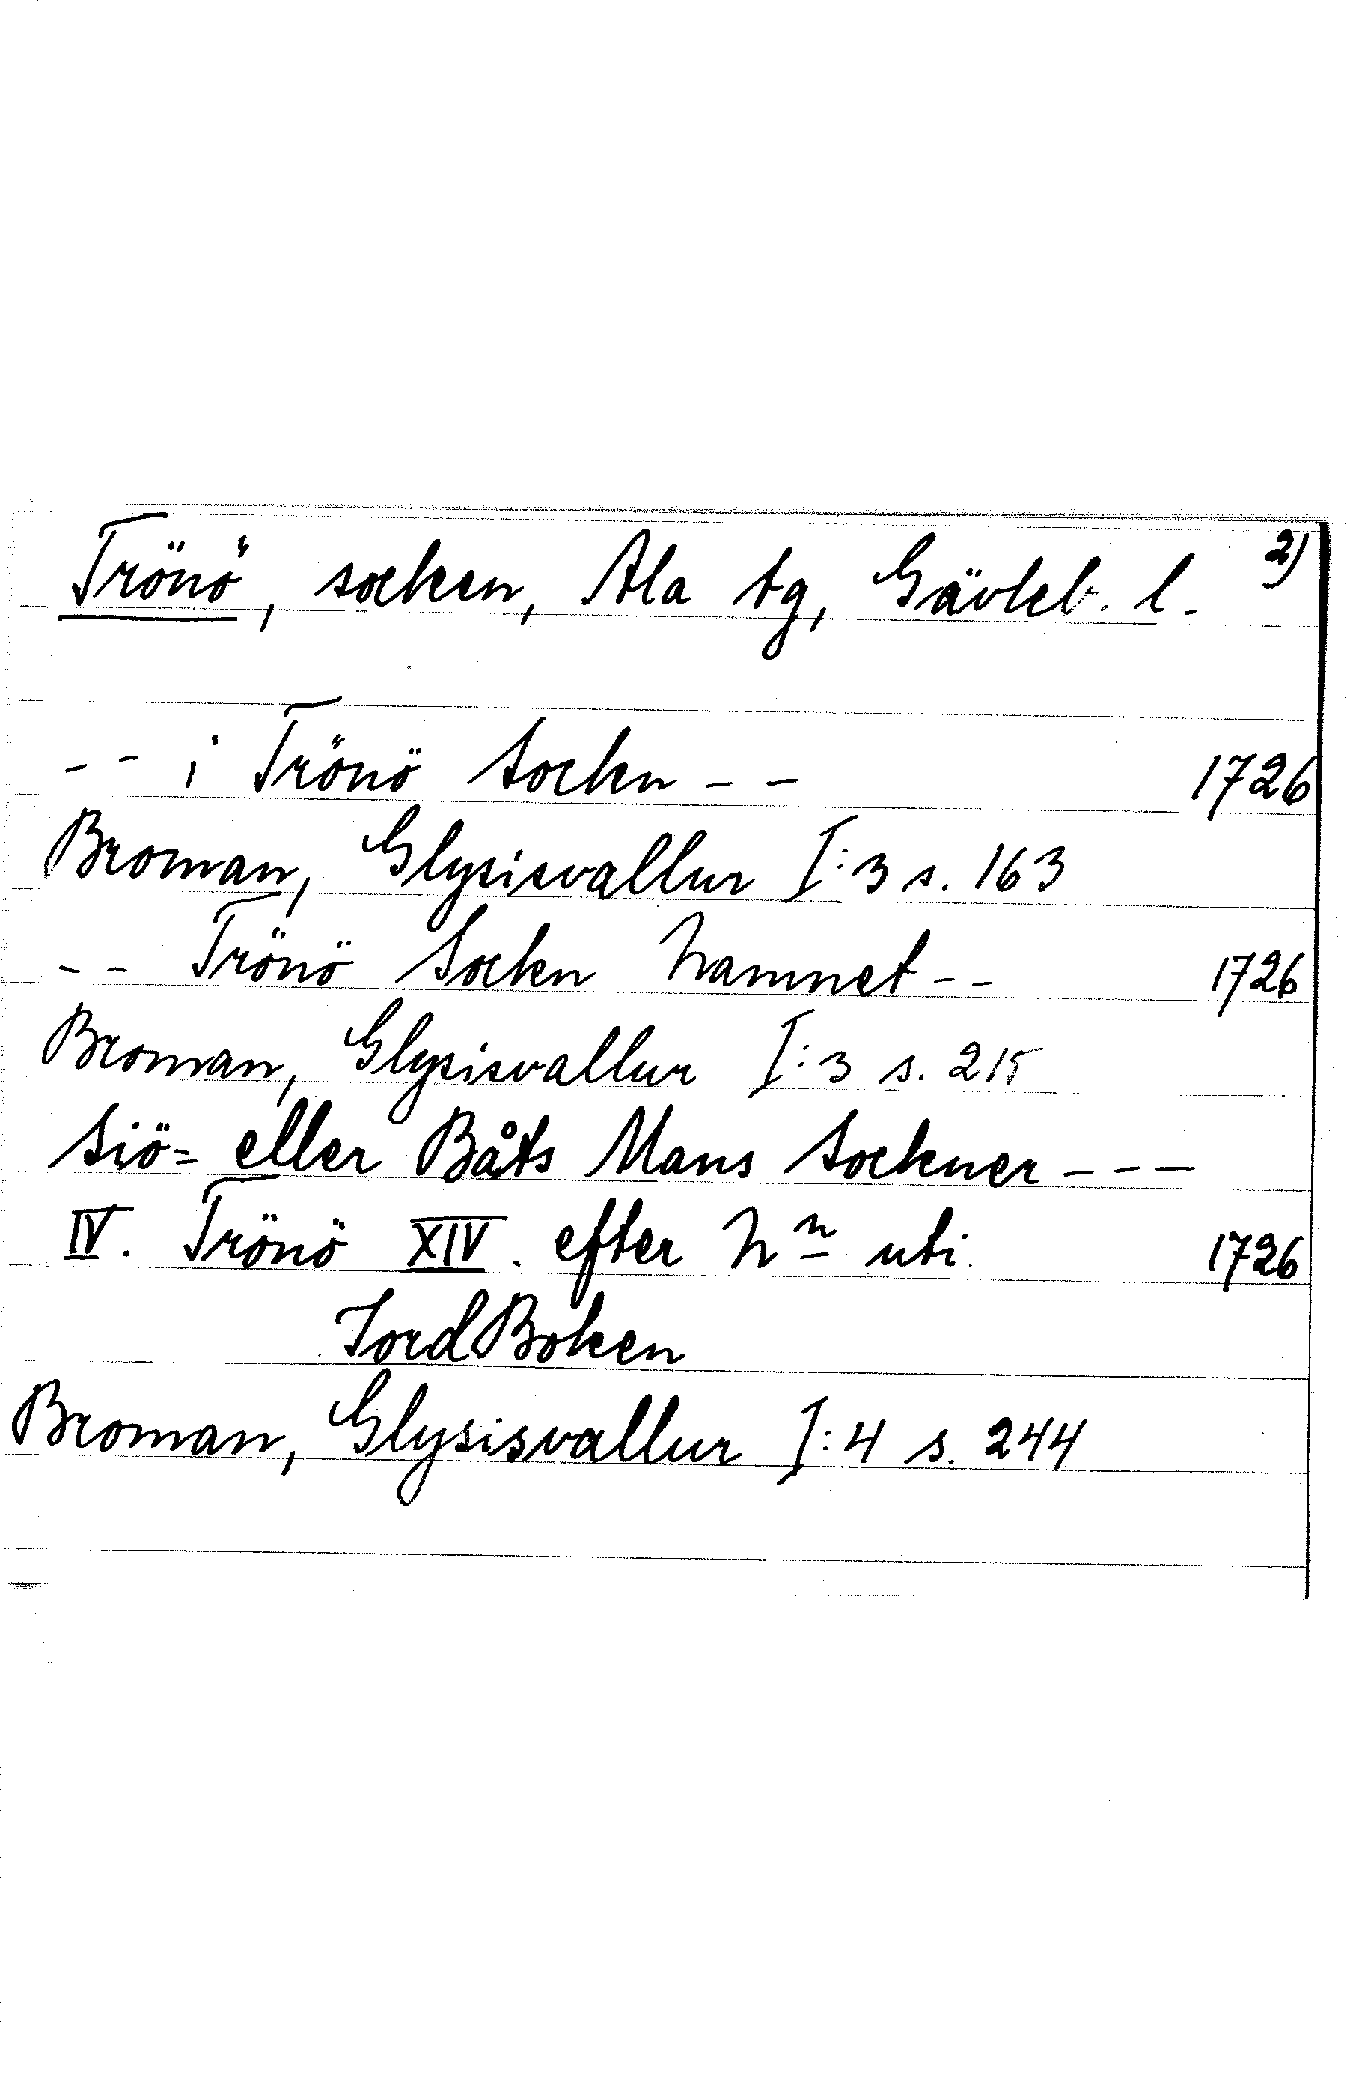 Trönö, socken, Ala tg, Gävleb. l. 2)
-- i Trönö Sockn -- 1726
Broman, Glysisvallur I:3 s. 163
-- Trönö Sockn Namnet -- 1726
Broman, Glysisvallur I:3 s. 215
Siö= eller Båts Mans Sockner ---
IV. Trönö XIV. efter N<sup>n</sup> uti 1726
JordBoken
Broman, Glysisvallur I:4 s. 244